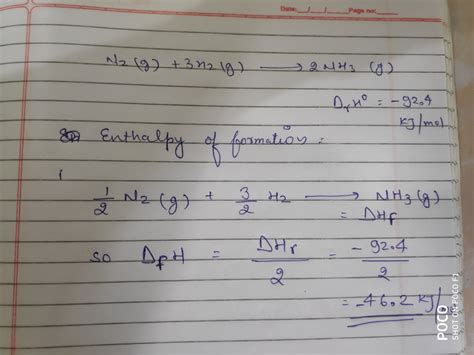 Date: / / Page no:
N₂(g) + 3H₂(g) ⟶ 2NH₃ (g)
ΔrH⁰ = -92.4
kJ/mol
Enthalpy of formation =
1/2 N₂(g) + 3/2 H₂ ⟶ NH₃(g)
= ΔHf
so ΔfH = ΔHr/2 = -92.4/2
= -46.2 kJ/
POCO
SHOT ON POCO F1